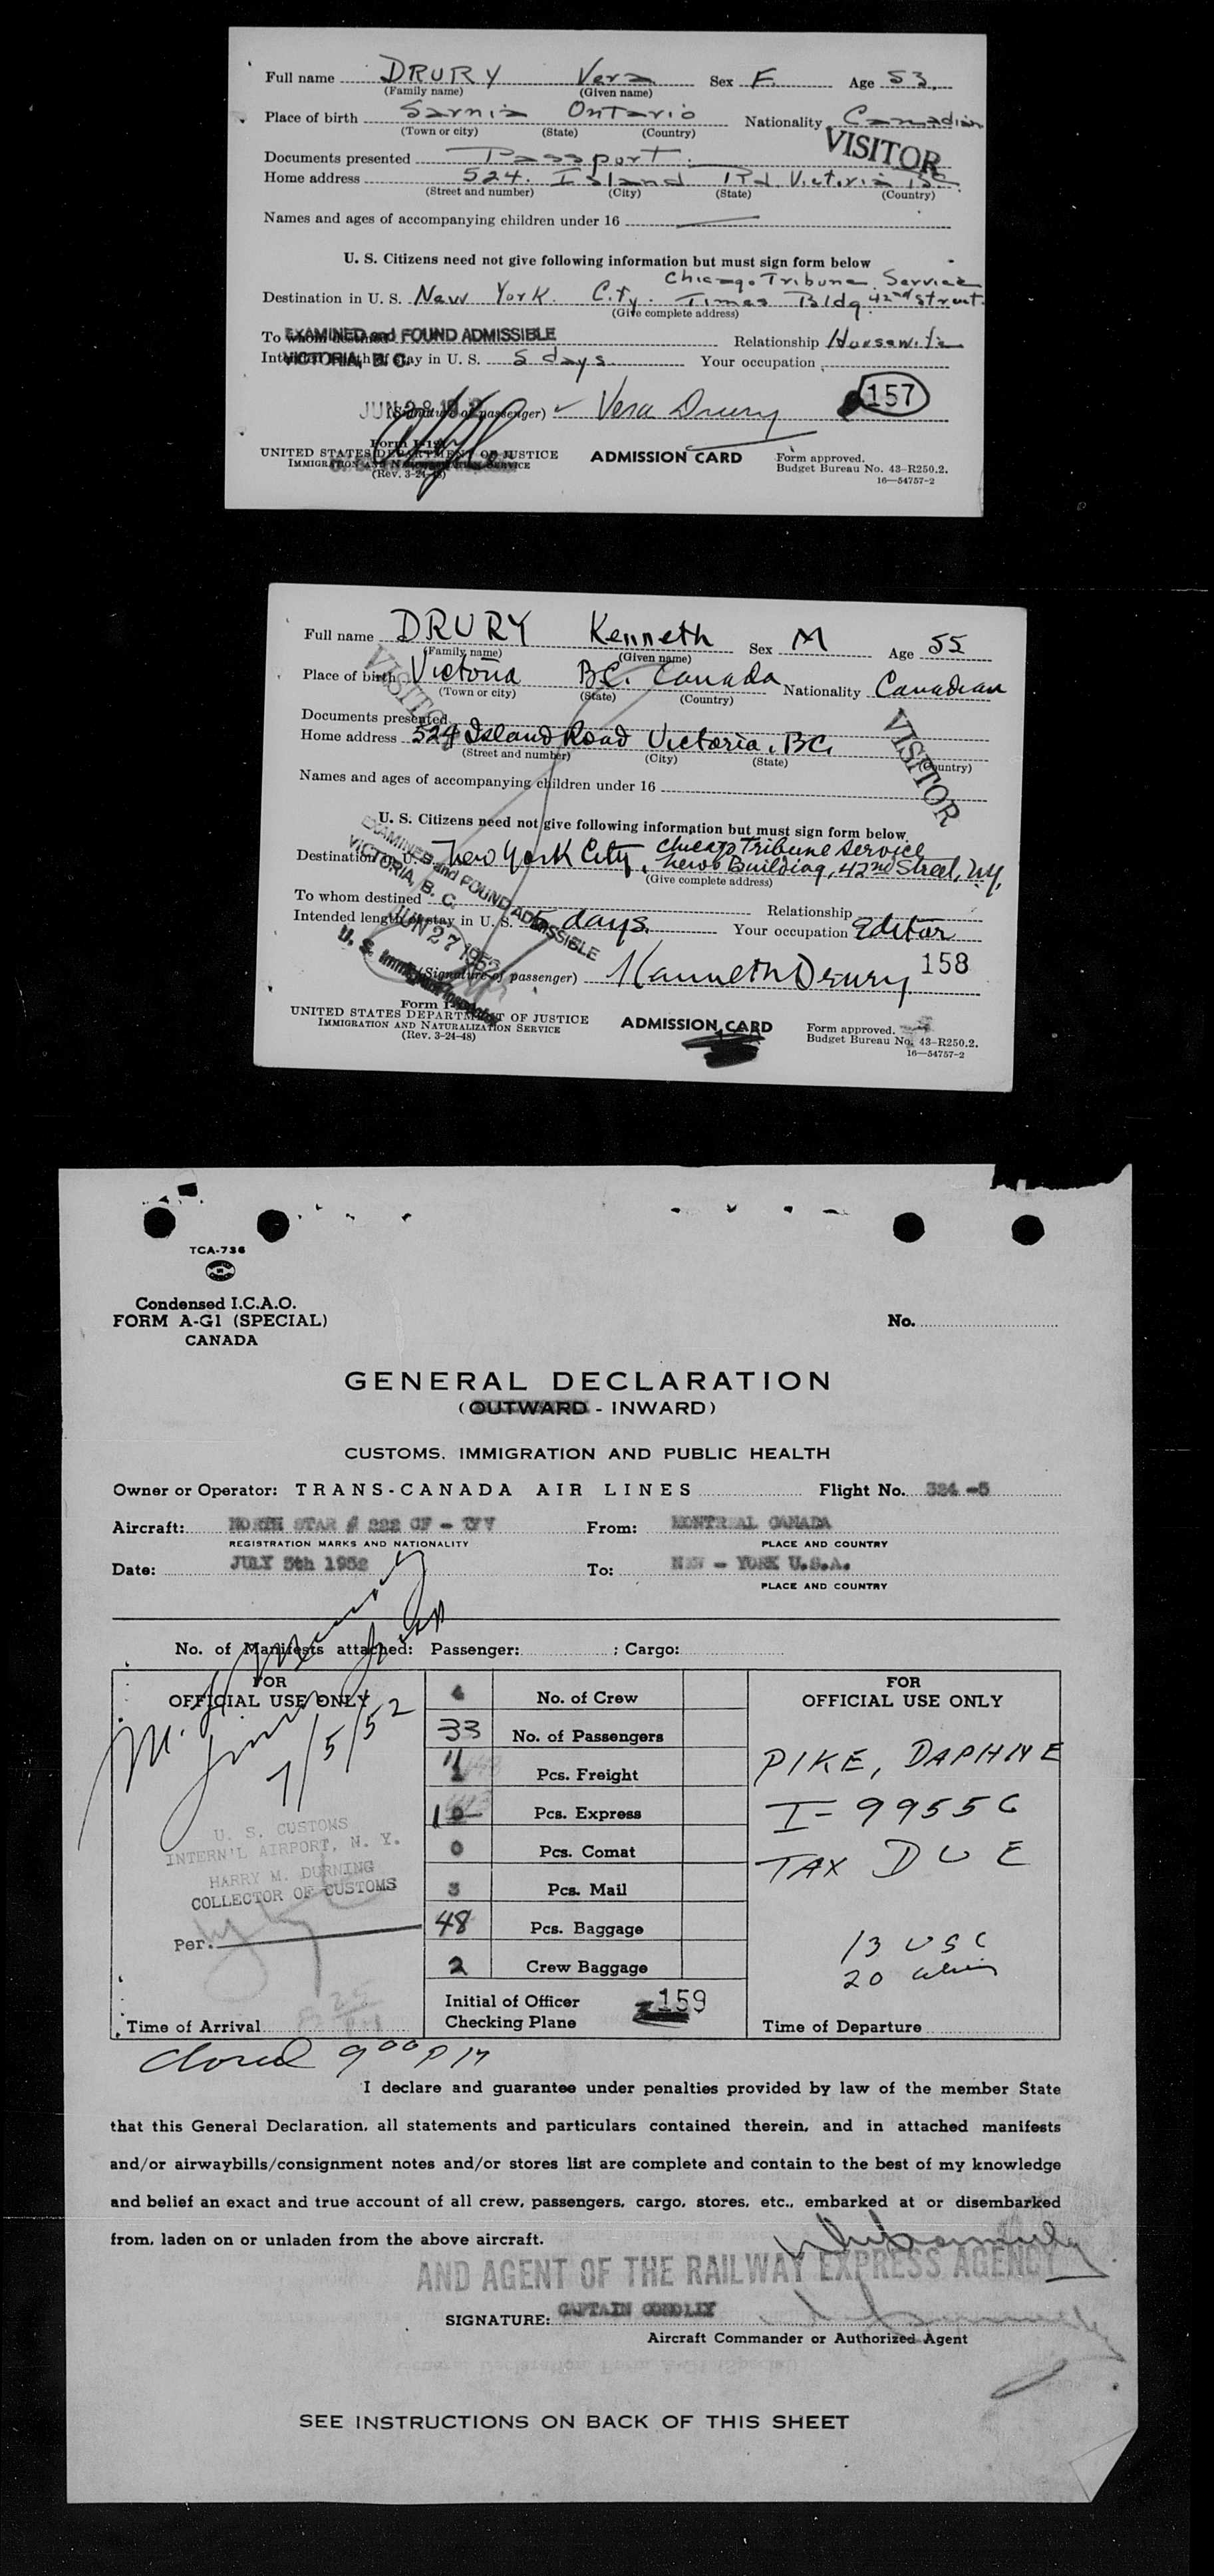 Full name DRURY Vera Sex F. Age 53.
(Family name) (Given name)
Place of birth Sarnia Ontario Nationality Canadian
(Town or city) (State) (Country)
VISITOR
Documents presented Passport.
Home address 524. Island Rd. Victoria BC.
(Street and number) (City) (State) (Country)
Names and ages of accompanying children under 16
U. S. Citizens need not give following information but must sign form below
Chicago Tribune Service
Destination in U. S. New York. City. Times Bldg. 42nd Street.
(Give complete address)
EXAMINED and FOUND ADMISSIBLE
To whom destined Relationship Housewife
VICTORIA, B. C.
Intended length of stay in U. S. 5 days Your occupation
157
JUN 28
(Signature of passenger) Vera Drury
Form I-
UNITED STATES DEPARTMENT OF JUSTICE
IMMIGRATION AND NATURALIZATION SERVICE
(Rev. 3-24-48)
ADMISSION CARD
Form approved.
Budget Bureau No. 43-R250.2.
16—54757-2
Full name DRURY Kenneth Sex M Age 55
(Family name) (Given name)
Place of birth Victoria B.C. Canada Nationality Canadian
(Town or city) (State) (Country)
VISITOR
VISITOR
Documents presented
Home address 524 Island Road Victoria, BC.
(Street and number) (City) (State) (Country)
Names and ages of accompanying children under 16
U. S. Citizens need not give following information but must sign form below
Chicago Tribune Service
Destination in U. S. New York City, News Building, 42nd Street, N.Y.
(Give complete address)
EXAMINED and FOUND ADMISSIBLE
VICTORIA, B. C.
JUN 27 1952
U. S. Immigrant Inspector
To whom destined Relationship
Intended length of stay in U. S. 5 days. Your occupation Editor
(Signature of passenger) Kenneth Drury 158
Form I-
UNITED STATES DEPARTMENT OF JUSTICE
IMMIGRATION AND NATURALIZATION SERVICE
(Rev. 3-24-48)
ADMISSION CARD
Form approved.
Budget Bureau No. 43-R250.2.
16—54757-2
TCA-736
Condensed I.C.A.O.
FORM A-G1 (SPECIAL)
CANADA
No.
GENERAL DECLARATION
(OUTWARD - INWARD)
CUSTOMS, IMMIGRATION AND PUBLIC HEALTH
Owner or Operator: TRANS-CANADA AIR LINES Flight No. 324 -5
Aircraft: NORTH STAR # 222 CF - TFV From: MONTREAL CANADA
REGISTRATION MARKS AND NATIONALITY PLACE AND COUNTRY
Date: JULY 5th 1952 To: NEW - YORK U.S.A.
PLACE AND COUNTRY
No. of Manifests attached: Passenger: ; Cargo:
FOR
OFFICIAL USE ONLY
7/5/52
U. S. CUSTOMS
INTERN'L AIRPORT, N. Y.
HARRY M. DURNING
COLLECTOR OF CUSTOMS
Per.
Time of Arrival
4 No. of Crew
33 No. of Passengers
Pcs. Freight
10 Pcs. Express
0 Pcs. Comat
3 Pcs. Mail
48 Pcs. Baggage
2 Crew Baggage
Initial of Officer
Checking Plane
159
FOR
OFFICIAL USE ONLY
PIKE, DAPHNE
I-99556
TAX DUE
13 USC
20 alien
Time of Departure
closed 9 00 PM
I declare and guarantee under penalties provided by law of the member State
that this General Declaration, all statements and particulars contained therein, and in attached manifests
and/or airwaybills/consignment notes and/or stores list are complete and contain to the best of my knowledge
and belief an exact and true account of all crew, passengers, cargo, stores, etc., embarked at or disembarked
from, laden on or unladen from the above aircraft.
AND AGENT OF THE RAILWAY EXPRESS AGENCY
SIGNATURE: CAPTAIN CONOLLY
Aircraft Commander or Authorized Agent
SEE INSTRUCTIONS ON BACK OF THIS SHEET